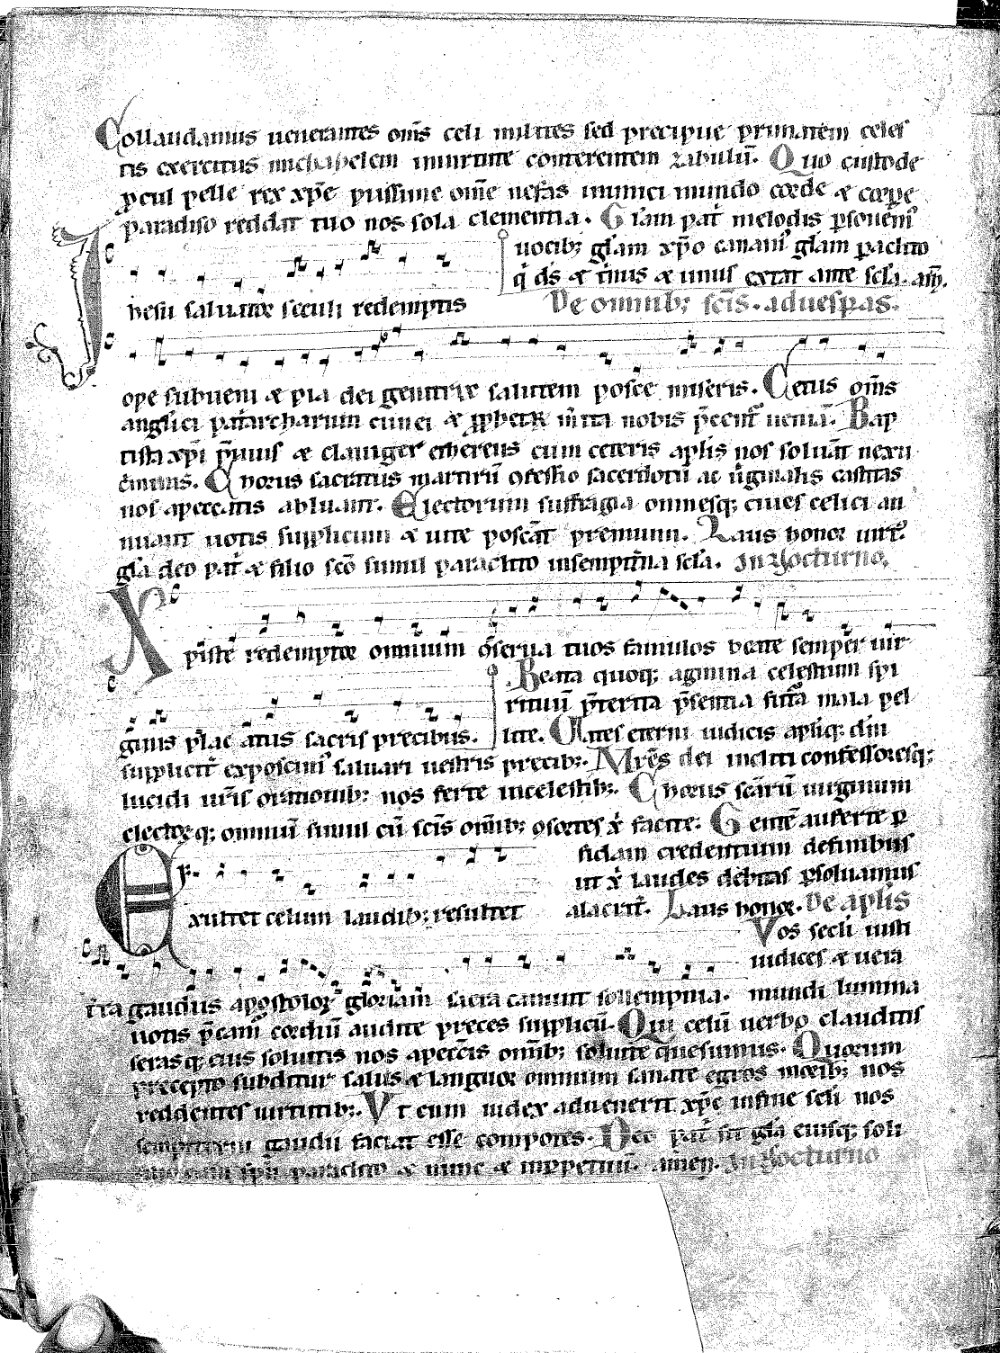 Collaudamus uenerantes oms celi milites sed precipue primatem celes
tis exercitus michahelem inuirtute conterentem zabulū. Quo custode
pcul pelle rex xp̄e piissime om̄e nefas inimici mundo corde & corpe
paradiso reddat tuo nos sola clementia. Glam pat melodis psonem'
uocib; glam xp̄o canam' glam paclito
q ds & tnus & unus extat ante scla. am.
Jhesu saluator seculi redemptis
De omnib; scis. aduesperas.
ope subueni & pia dei genitrix salutem posce miseris. Cetus oms
anglici patarcharum cunei & pphetar mita nobis pcent' ueniā. Bap
tista xpi preuius & clauiger ethereus cum ceteris aplis nos soluat nexu
criminis. Chorus sacratus martirū ofessio sacerdotū ac uginalis castitas
nos apeccatis abluant. Electorum suffragia omnesq; ciues celici an
nuant uotis supplicum & uite poscat premium. Laus honor uirt'
gla deo pat & filio sco simul paraclito insempitna scla. In Nocturno.
Xpiste redemptor omnium oserua tuos famulos beate semper uir
Beata quoq; agmina celestium spi
rituū pterita psentia futa mala pel
ginis plac atus sacris precibus. lite. Uates eterni iudicis apliq; dni
suppliciť exposcim' saluari uestris precib;. Mres dei incliti confessoresq;
lucidi uris orationib; nos ferte incelestib;. Chorus scarū uirginum
electorq; omniū simul cū scis omib; osortes x facite. Gentē auferte p
fidam credentium definibus
ut x laudes debitas psoluamus
Exultet celum laudib; resultet alacrit. Laus honor. De aplis
Vos secli iusti
iudices & uera
trra gaudiis apostolor gloriam sacra canunt sollempnia. mundi lumina
uotis pcam' cordiū audite preces supplicū. Qui celū uerbo clauditis
serasq; eius soluitis nos apeccis omib; soluite quesumus. Quorum
precepto subditur salus & languor omnium sanate egros morib; nos
reddentes uirtutib;. Vt cum iudex aduenerit xp̄e infine scli nos
sempiterni gaudii faciat esse compotes. Deo pat sit gla eiusq; soli
filio cum spu paraclito & nunc & inppetuū. amen. In Nocturno